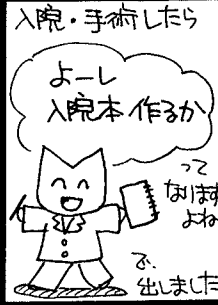 入院・手術したら
よーし
入院本作るか
って
なります
よね
で、
出しました